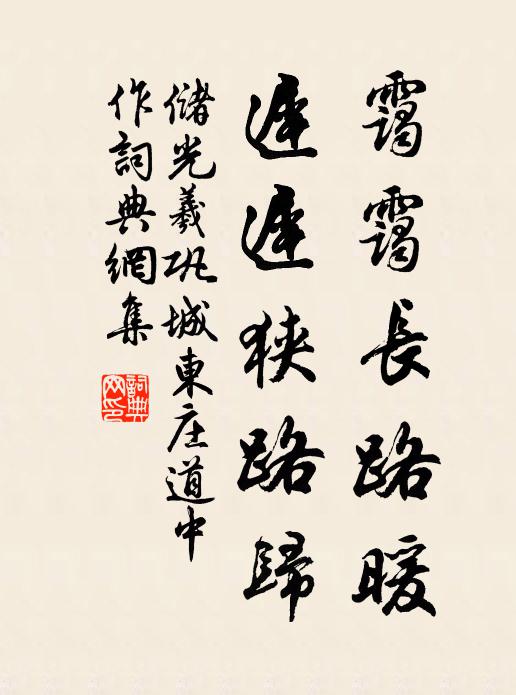 靄靄長路暖
遲遲狹路歸
儲光羲巩城東庄道中
作詞典網集
詞典
网印